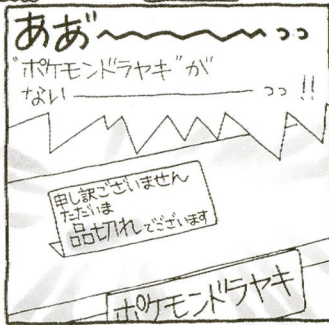 ああ゛〜〜〜〜っっ
"ポケモンドラヤキ"が
ない────っっ!!
申し訳ございません
ただいま
品切れでございます
ポケモンドラヤキ